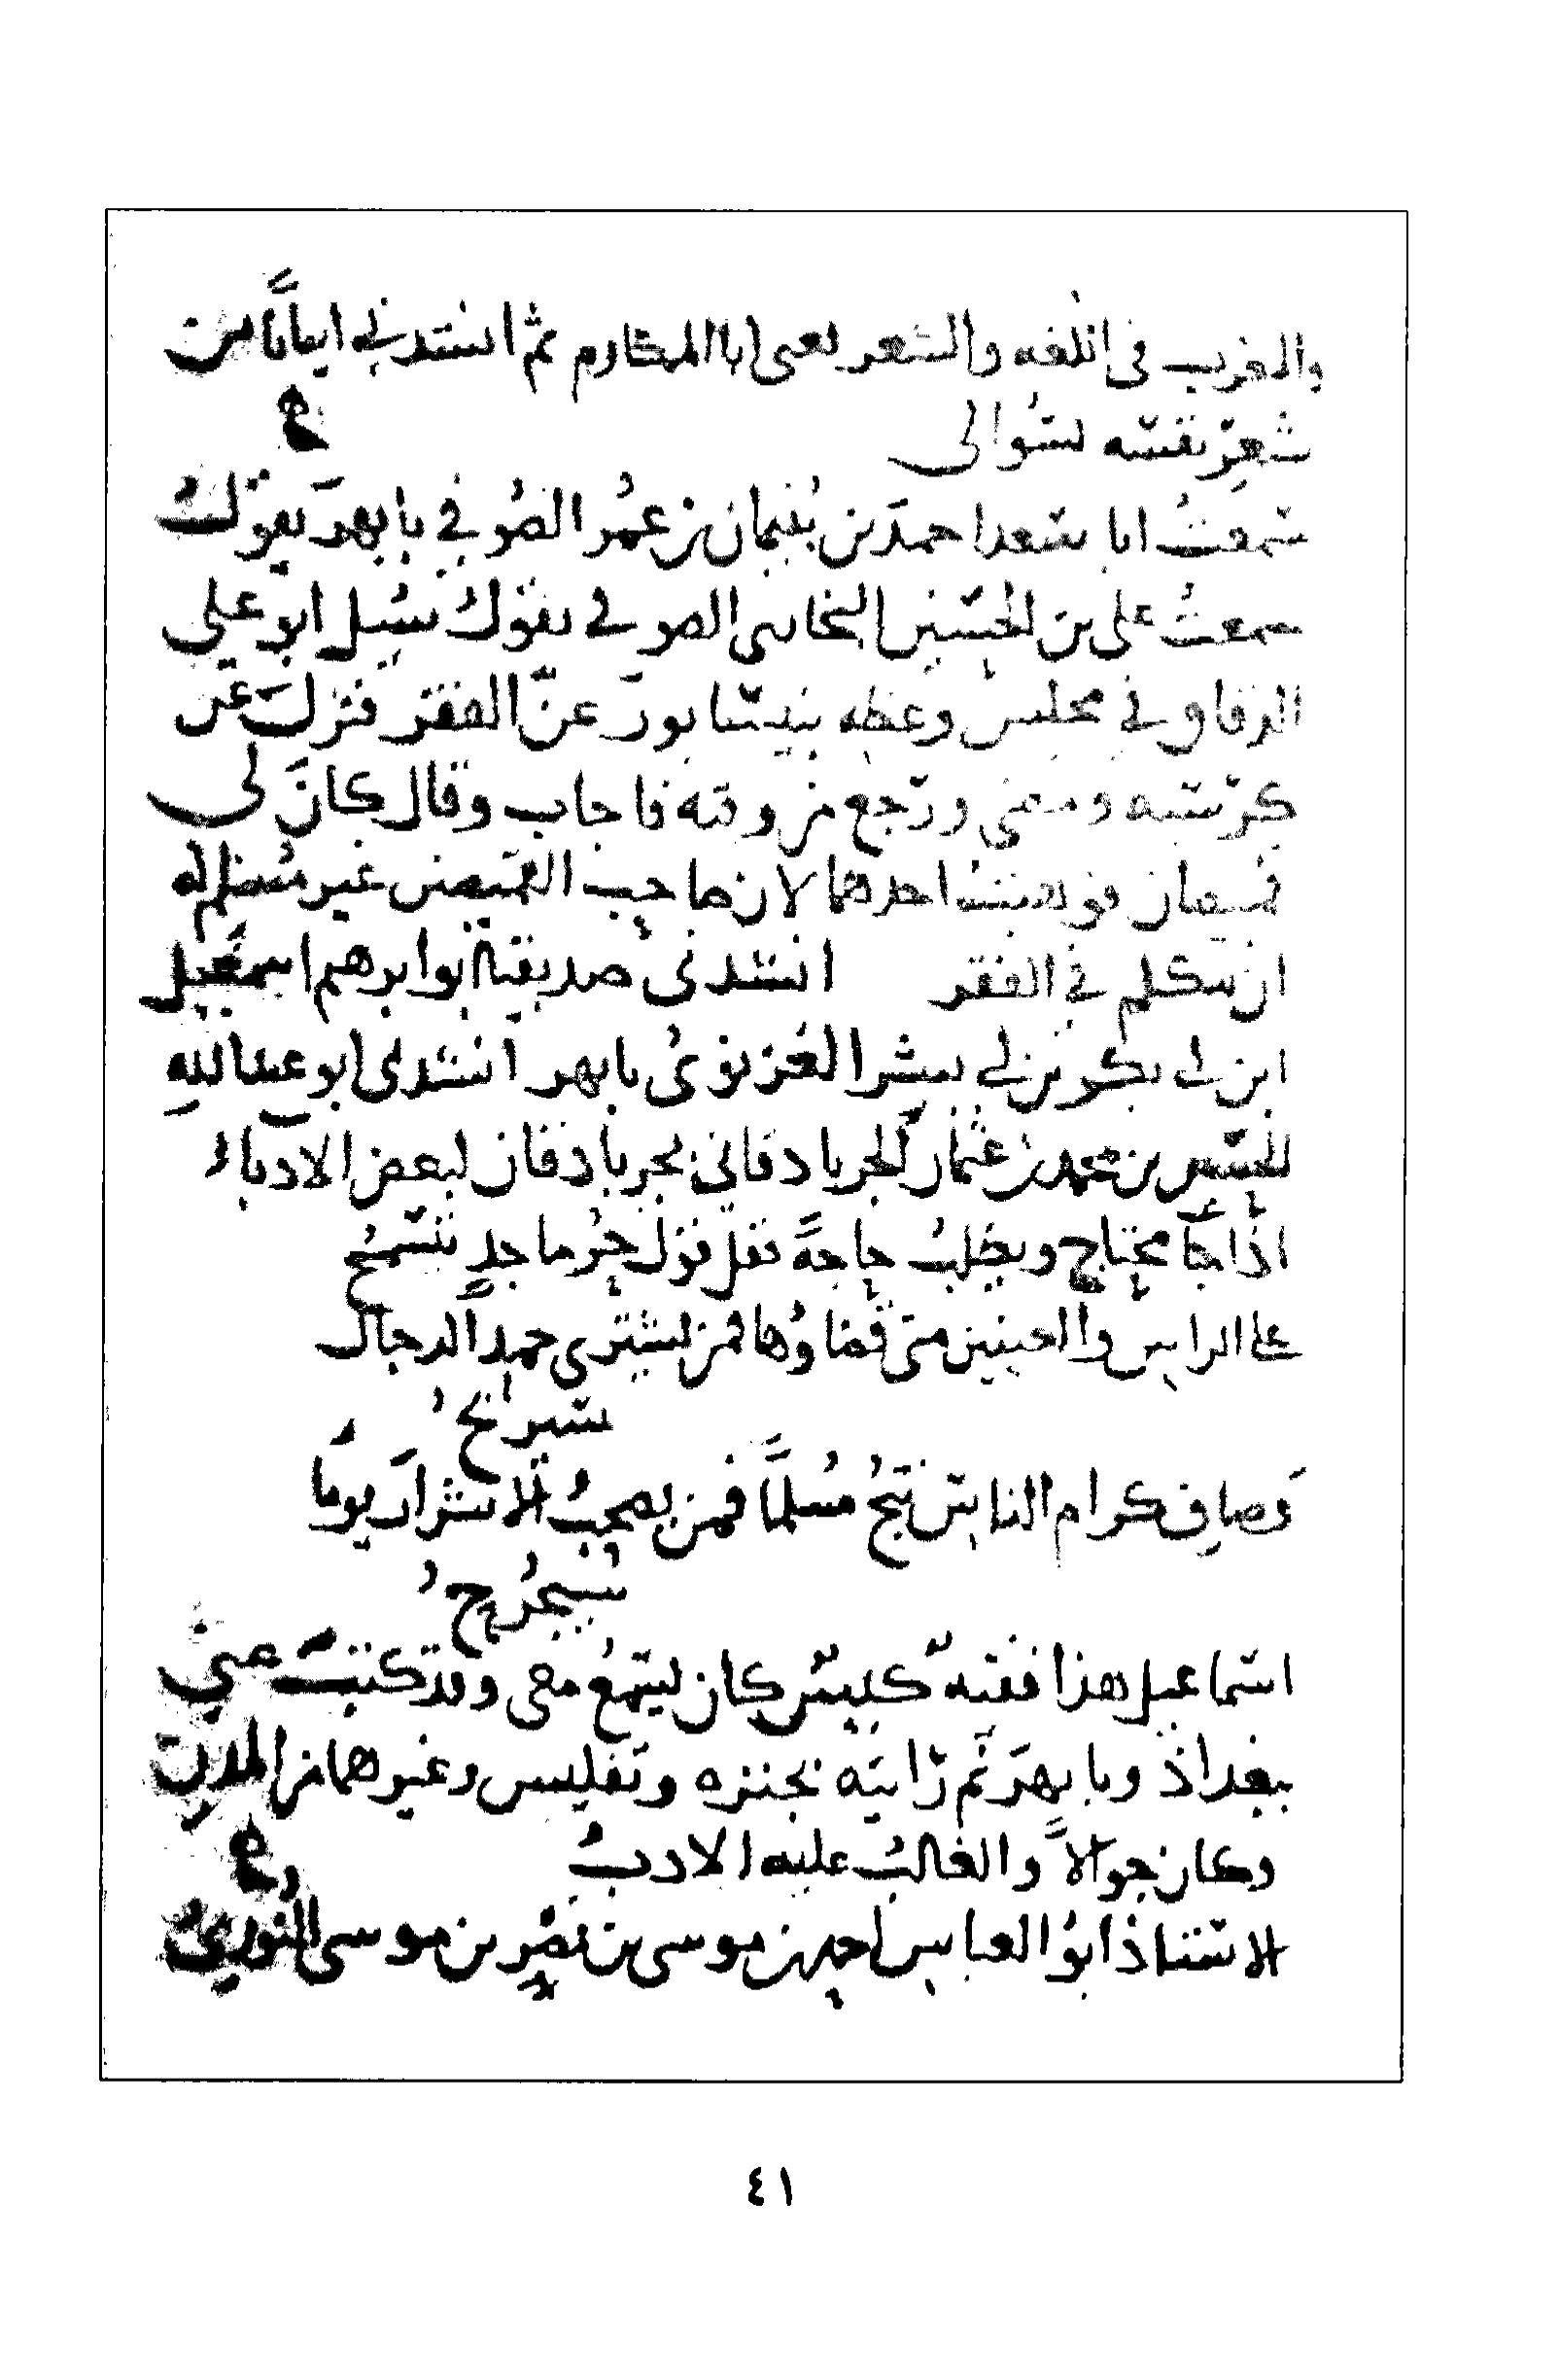 والمغرب في اللغه والشعر يعني ابا المكارم ثم انشدني ابياتا من
شعر نفسه لسوالي
سمعت ابا سعد احمد بن بنيمان بن عمر الصوفي بابهر يقول
سمعت علي بن الحسين الصوفي يقول سئل ابو علي
الدقاق في مجلس وعظه بنيسابور عن الفقر فنزل عن
كرسيه ومضى ورجع من وقته فاجاب وقال كان لي
قميصان فوهبت احدهما لان صاحب القميص غير مسلم له
ان يتكلم في الفقر انشدني صديقنا ابو ابرهيم اسمعيل
ابن ابي بكر بن ابي بشر الغزنوي بابهر انشدني ابو عبد الله
الحسين بن محمد بن عثمان الجرباذقاني بجرباذقان لبعض الادباء
اذا جا محتاج ويطلب حاجة فقل قول حر ماجد يتسمح
على الراس والعينين مني قضاوها فمن يشتري حمد الرجال
سيربح
وصاف كرام الناس تنج مسلما فمن يصحب الاشرار يوما
سيجرح
اسماعيل هذا فقيه كيس كان يسمع معي وقد كتبت عني
ببغداذ وبابهر ثم رايته بجنزه وتفليس وغيرهما من المدن
وكان جوالا والغالب عليه الادب
الاستاذ ابو العباس احمد بن موسى بن نصر بن موسى
٤١